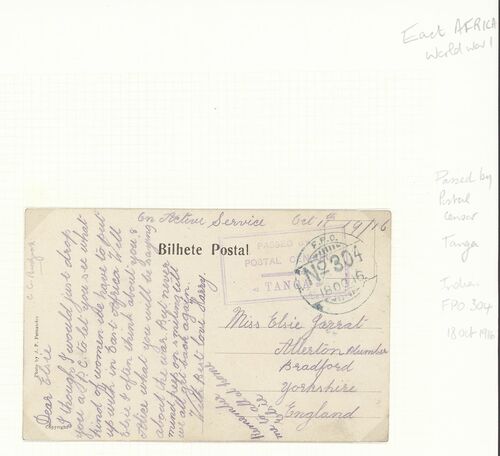 East AFRICA
World War I
Passed by
Postal
Censor
Tanga
Indian
F.P.O. 304
18 Oct 1916
On Active Service Oct 17th 1916
Bilhete Postal
PASSED BY
POSTAL CENSOR
TANGA
F.P.O.
No 304
18 OC 16
Miss Elsie Jarrat
Allerton
Bradford
Yorkshire
England
Remember
me to
all at home
Dear Elsie
I thought I would just drop
you a P.P.C. to let you see what
kind of women we have to put
up with in East Africa. Well
Elsie I often think about you &
Alice what you will be saying
about the war. But never
mind keep on smiling till
we get back again.
With Best love Harry
Copyright